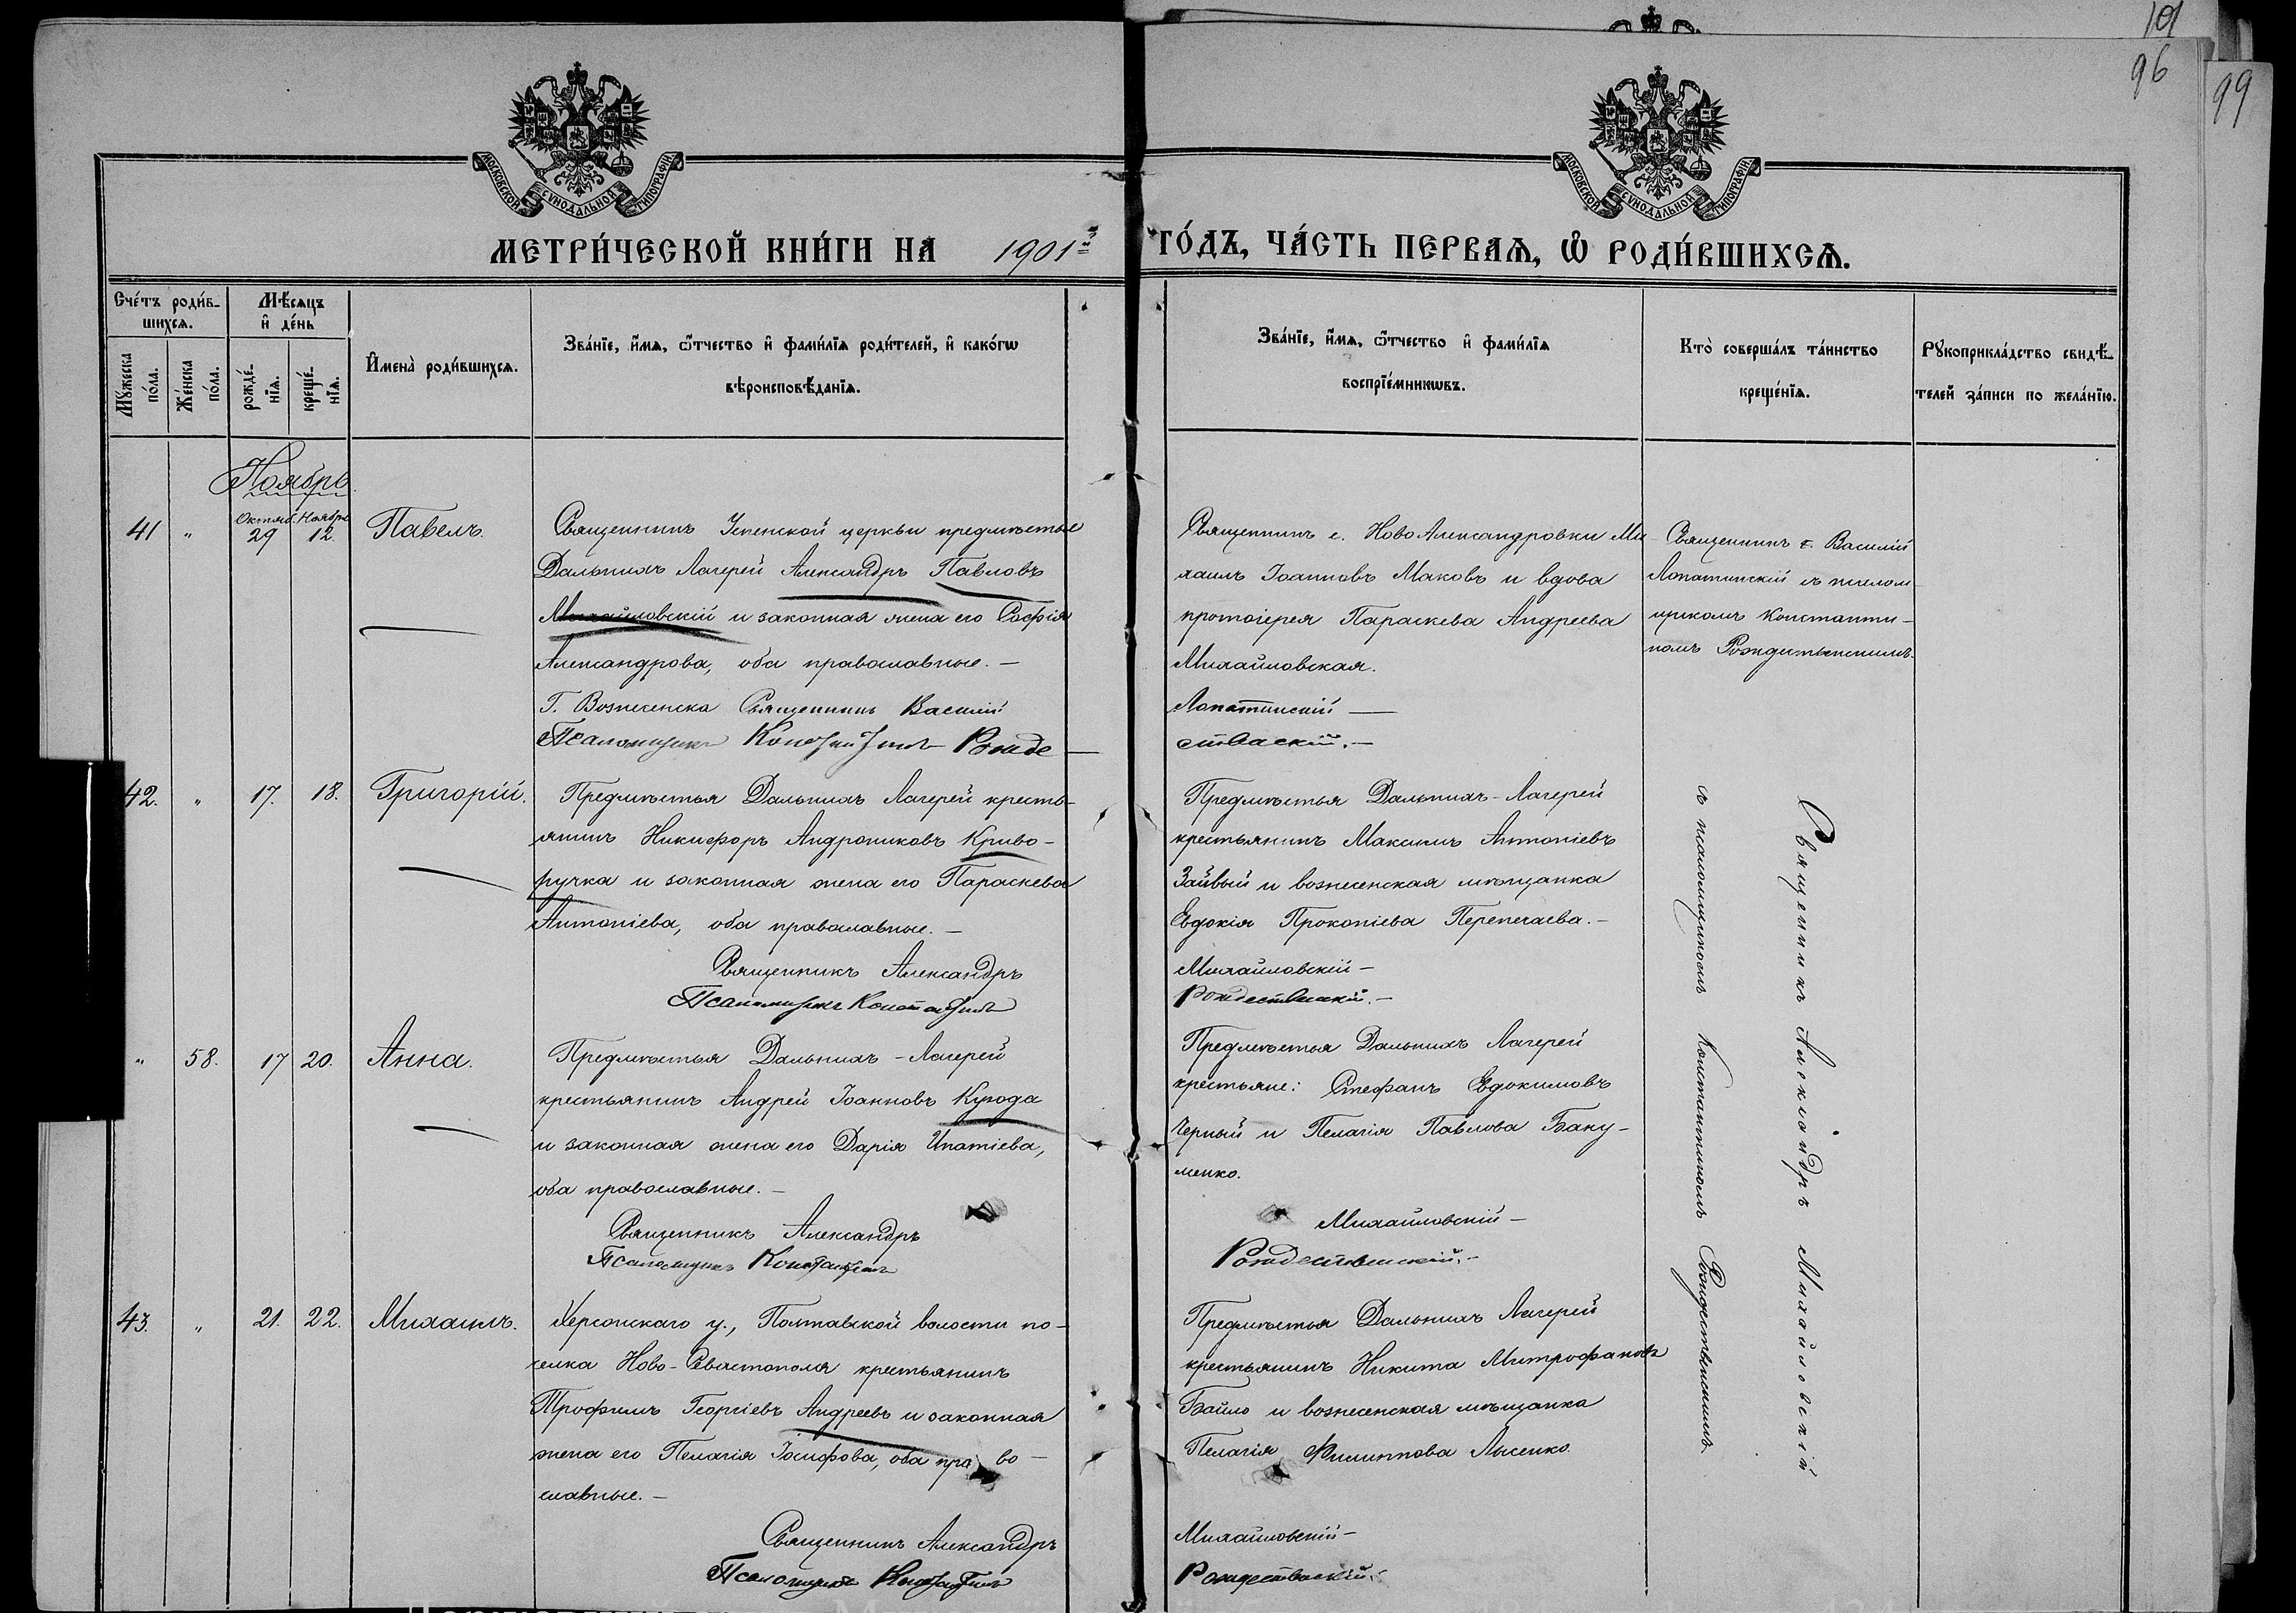 101
96
99
МОСКОВСКОЙ СѴНОДАЛЬНОЙ ТИПОГРАФІИ
МОСКОВСКОЙ СѴНОДАЛЬНОЙ ТИПОГРАФІИ
МЕТРИ́ЧЕСКОЙ КНИ́ГИ НА 1901й ГО́ДЪ, ЧА́СТЬ ПЕРВАѦ, Ѡ҆ РОДИ́ВШИХСѦ.
Сче́тъ роди́в-
шихсѧ.
Мꙋ́жеска по́ла.
Же́нска по́ла.
Мѣ́сяцъ
и҆ де́нь
рожде́-нїѧ.
креще́-нїѧ.
И҆мена̀ роди́вшихсѧ.
Зва́нїе, и҆́мѧ, ѻ҆́тчество и҆ фами́лїѧ роди́телей, и҆ како́гѡ
вѣроисповѣ́данїѧ.
Зва́нїе, и҆́мѧ, ѻ҆́тчество и҆ фами́лїѧ
воспрїе́мникѡвъ.
Кто̀ соверша́лъ та́инство
креще́нїѧ.
Рꙋкоприкла́дство свидѣ́-
телей за́писи по жела́нїю.
Ноябрь
41 " Октяб. 29 Ноябрь 12. Павелъ.
Священникъ Успенской церкви предмѣстья
Дальнихъ Лагерей Александръ Павловъ
Михайловскій и законная жена его Софія
Александрова, оба православные. —
Г. Вознесенска Священникъ Василій
Псаломщикъ Константинъ Рожде-
Священникъ с. НовоАлександровки Ми-
хаилъ Іоанновъ Маковъ и вдова
протоіерея Параскева Андреева
Михайловская.
Лопатинскій —
ственскій. —
Священникъ г. Василій
Лопатинскій съ псалом-
щикомъ Константи-
номъ Рождественскимъ.
42. " 17. 18. Григорій.
Предмѣстья Дальнихъ Лагерей кресть-
янинъ Никифоръ Андрониковъ Криво-
ручка и законная жена его Параскева
Антоніева, оба православные. —
Священникъ Александръ
Псаломщикъ Константинъ
Предмѣстья Дальнихъ-Лагерей
крестьянинъ Максимъ Антоніевъ
Зайвый и вознесенская мѣщанка
Евдокія Прокопіева Перепечаева. —
Михайловскій —
Рождественскій. —
" 58. 17 20. Анна.
Предмѣстья Дальнихъ-Лагерей
крестьянинъ Андрей Іоанновъ Курода
и законная жена его Дарія Ипатіева,
оба православные. —
Священникъ Александръ
Псаломщикъ Константинъ
Предмѣстья Дальнихъ Лагерей
крестьяне: Стефанъ Евдокимовъ
Черный и Пелагія Павлова Баку-
менко.
Михайловскій —
Рождественскій. —
43. " 21. 22. Михаилъ.
Херсонскаго у., Полтавской волости по-
селка Ново-Севастополя крестьянинъ
Трофимъ Георгіевъ Андреевъ и законная
жена его Пелагія Іосифова, оба право-
славные. —
Священникъ Александръ
Псаломщикъ Константинъ
Предмѣстья Дальнихъ Лагерей
крестьянинъ Никита Митрофановъ
Байло и вознесенская мѣщанка
Пелагія Филиппова Лысенко
Михайловскій —
Рождественскій.
Священникъ Александръ Михайловскій
съ псаломщикомъ Константиномъ Рождественскимъ.